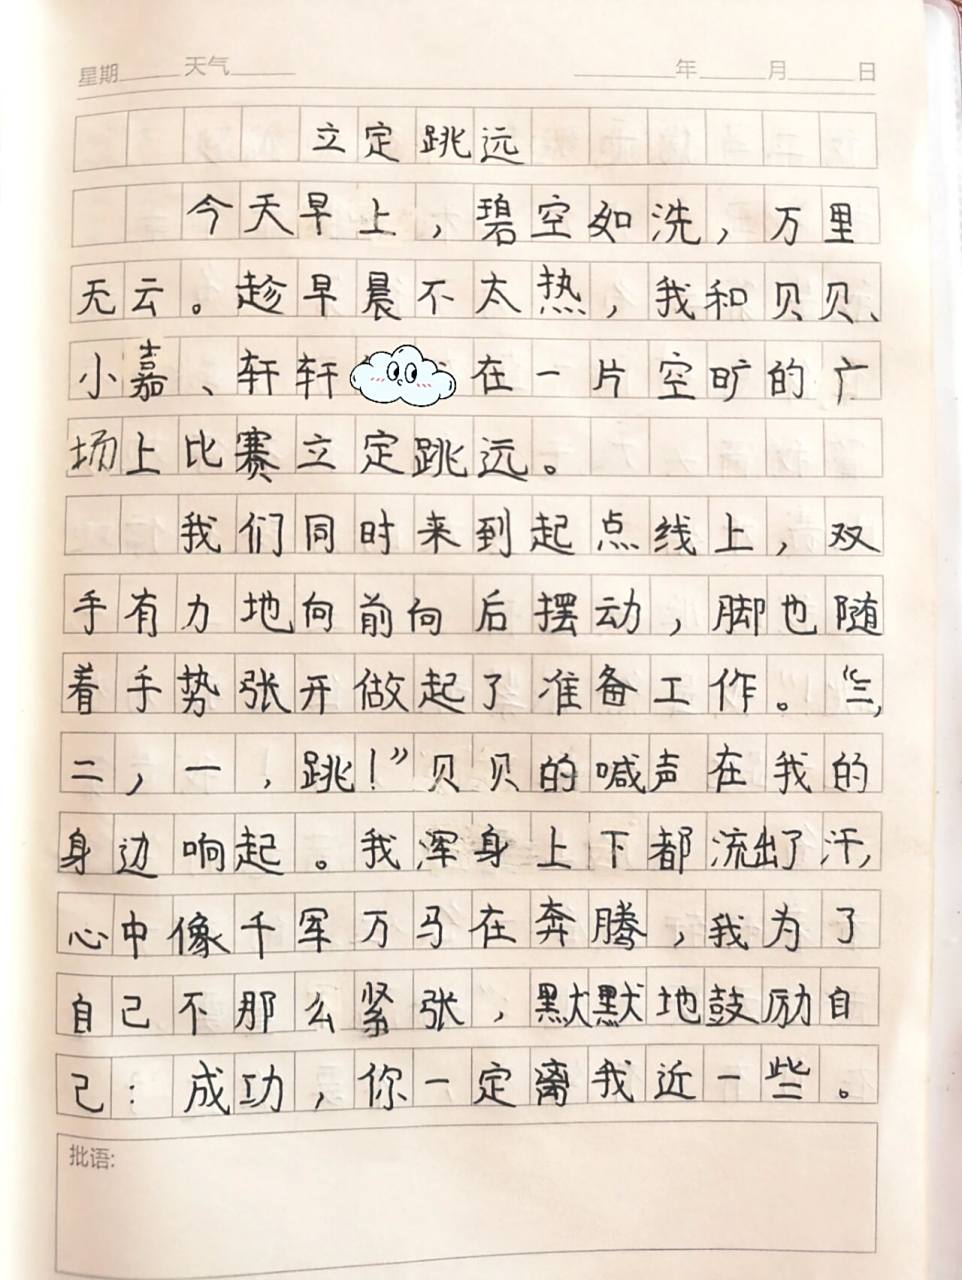 星期 天气 年 月 日
立定跳远
今天早上，碧空如洗，万里
无云。趁早晨不太热，我和贝贝、
小嘉、轩轩 在一片空旷的广
场上比赛立定跳远。
我们同时来到起点线上，双
手有力地向前向后摆动，脚也随
着手势张开做起了准备工作。“三，
二，一，跳！”贝贝的喊声在我的
身边响起。我浑身上下都流出了汗，
心中像千军万马在奔腾，我为了
自己不那么紧张，默默地鼓励自
己：成功，你一定离我近一些。
批语: